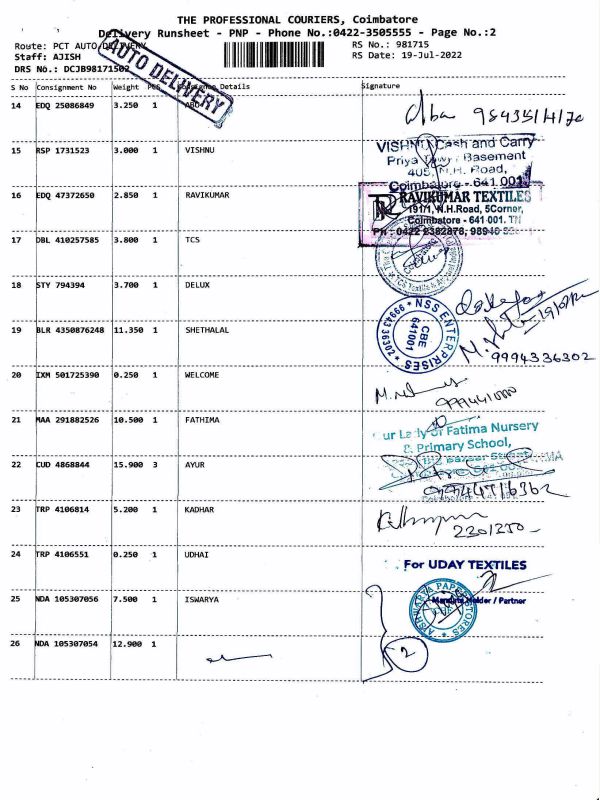 THE PROFESSIONAL COURIERS, Coimbatore
Delivery Runsheet - PNP - Phone No.:0422-3505555 - Page No.:2
Route: PCT AUTO DELIVERY
Staff: AJISH
DRS No.: DCJB98171502
RS No.: 981715
RS Date: 19-Jul-2022
AUTO DELIVERY
S No Consignment No Weight PCS Consignee Details Signature
14 EDQ 25086849 3.250 1
15 RSP 1731523 3.000 1 VISHNU
VISHNU Cash and Carry
Priya Tower Basement
405, N.H. Road,
Coimbatore - 641 001
16 EDQ 47372650 2.850 1 RAVIKUMAR
RAVIKUMAR TEXTILES
191/1, N.H.Road, 5Corner,
Coimbatore - 641 001. TN
Ph : 0422 2382878, 98940
17 DBL 410257585 3.800 1 TCS
18 STY 794394 3.700 1 DELUX
19 BLR 4350876248 11.350 1 SHETHALAL
NSS ENTERPRISES * 9994336302 *
CBE
641001
9994336302
20 IXM 501725390 0.250 1 WELCOME
21 MAA 291882526 10.500 1 FATHIMA
ur Lady of Fatima Nursery
& Primary School,
22 CUD 4868844 15.900 3 AYUR
23 TRP 4106814 5.200 1 KADHAR
24 TRP 4106551 0.250 1 UDHAI
For UDAY TEXTILES
Holder / Partner
25 NDA 105307056 7.500 1 ISWARYA
AISHWARYA PAPER STORES
26 NDA 105307054 12.900 1
2